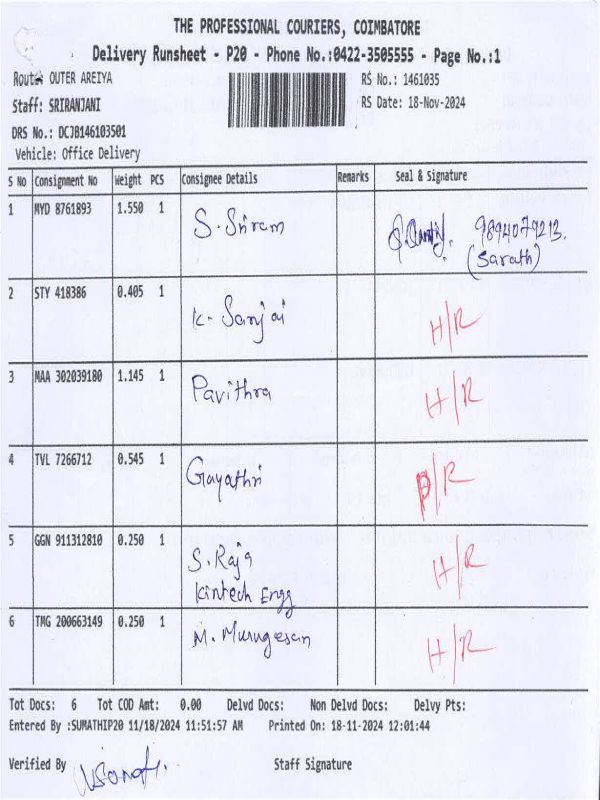 THE PROFESSIONAL COURIERS, COIMBATORE
Delivery Runsheet - P20 - Phone No.:0422-3505555 - Page No.:1
Route: OUTER AREIYA RS No.: 1461035
Staff: SRIRANJANI RS Date: 18-Nov-2024
DRS No.: DCJB146103501
Vehicle: Office Delivery
S No Consignment No Weight PCS Consignee Details Remarks Seal & Signature
1 MYD 8761893 1.550 1 S. Sriram 9894079213.
(Sarath)
2 STY 418386 0.405 1 K. Sanjai H/R
3 MAA 302039180 1.145 1 Pavithra H/R
4 TVL 7266712 0.545 1 Gayathri P/R
5 GGN 911312810 0.250 1 S. Raja H/R
Kintech Engg
6 TMG 200663149 0.250 1 M. Murugesan H/R
Tot Docs: 6 Tot COD Amt: 0.00 Delvd Docs: Non Delvd Docs: Delvy Pts:
Entered By :SUMATHIP20 11/18/2024 11:51:57 AM Printed On: 18-11-2024 12:01:44
Verified By Staff Signature